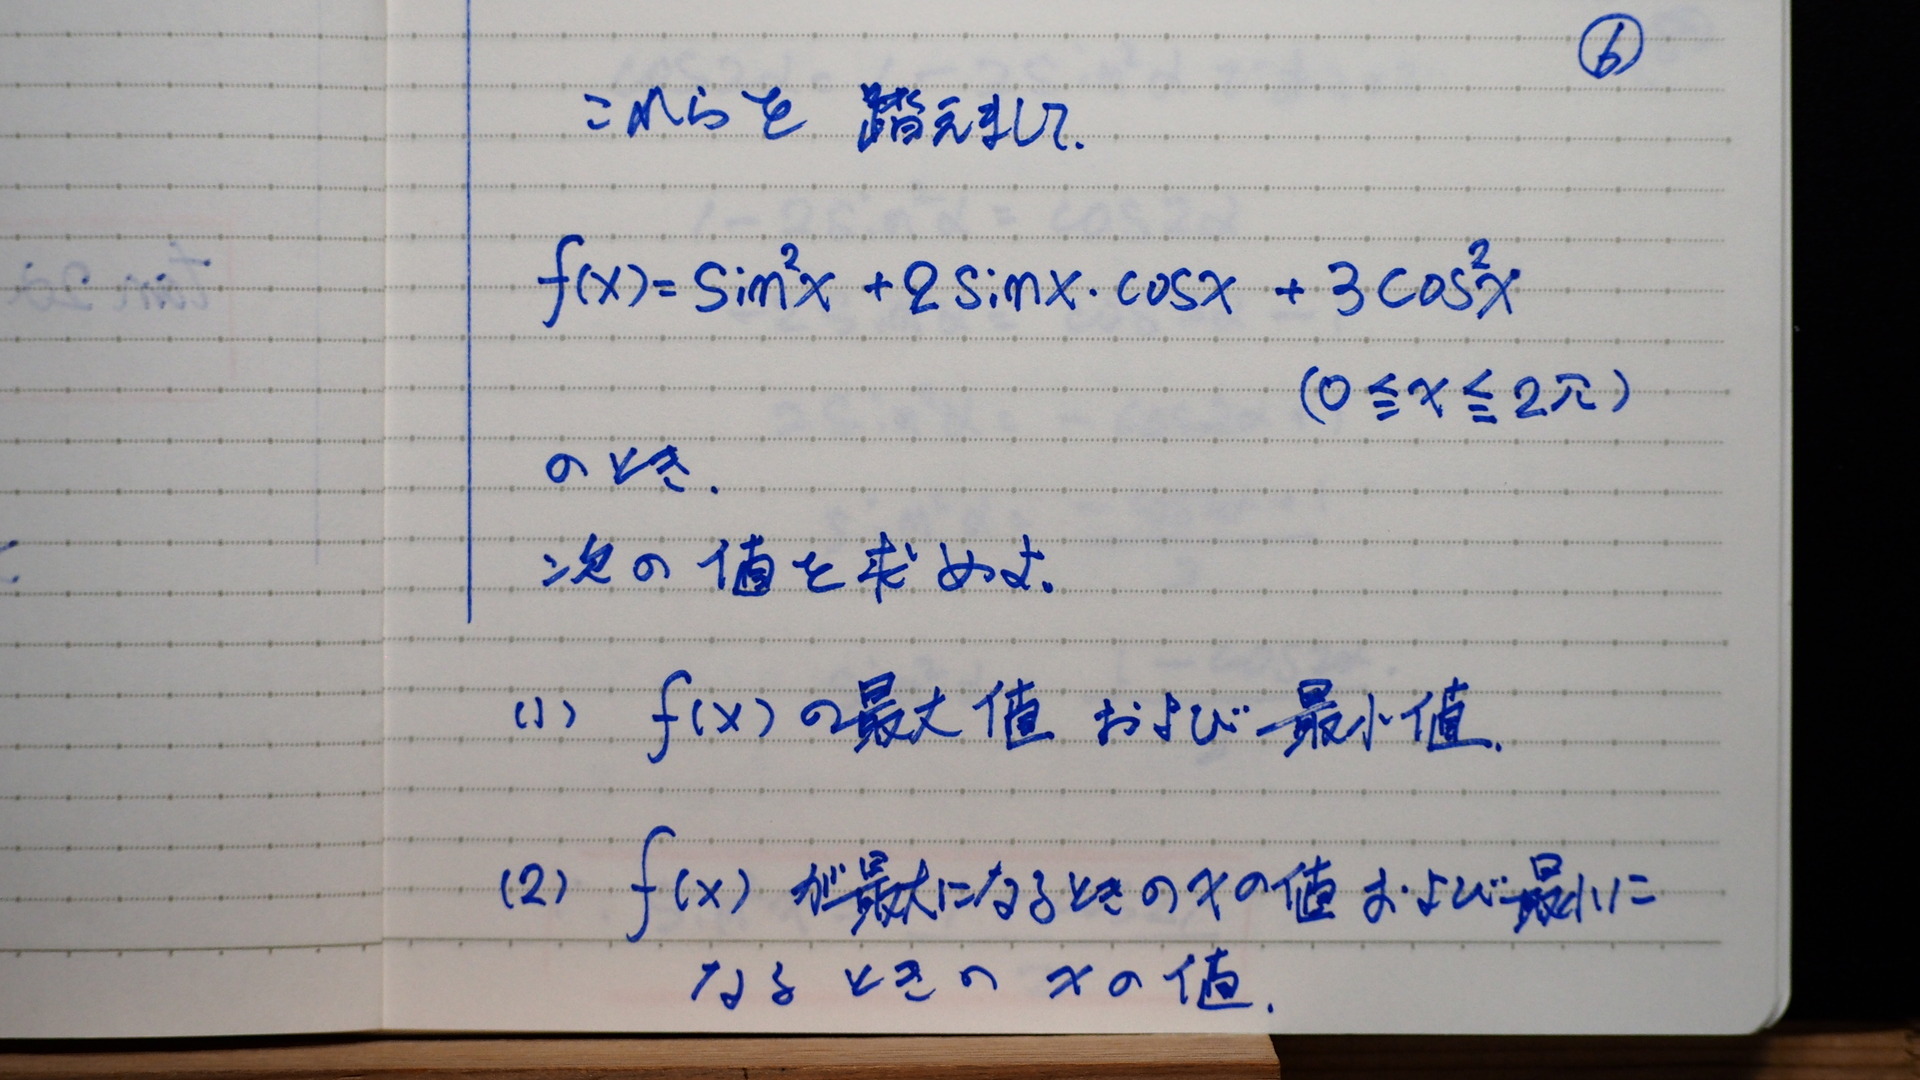 ⑥
これらを踏えまして.
f(x)=sin²x+2sinx・cosx+3cos²x
(0≦x≦2π)
のとき.
次の値を求めよ.
(1) f(x)の最大値 および 最小値.
(2) f(x)が最大になるときのxの値および最小に
なるときのxの値.